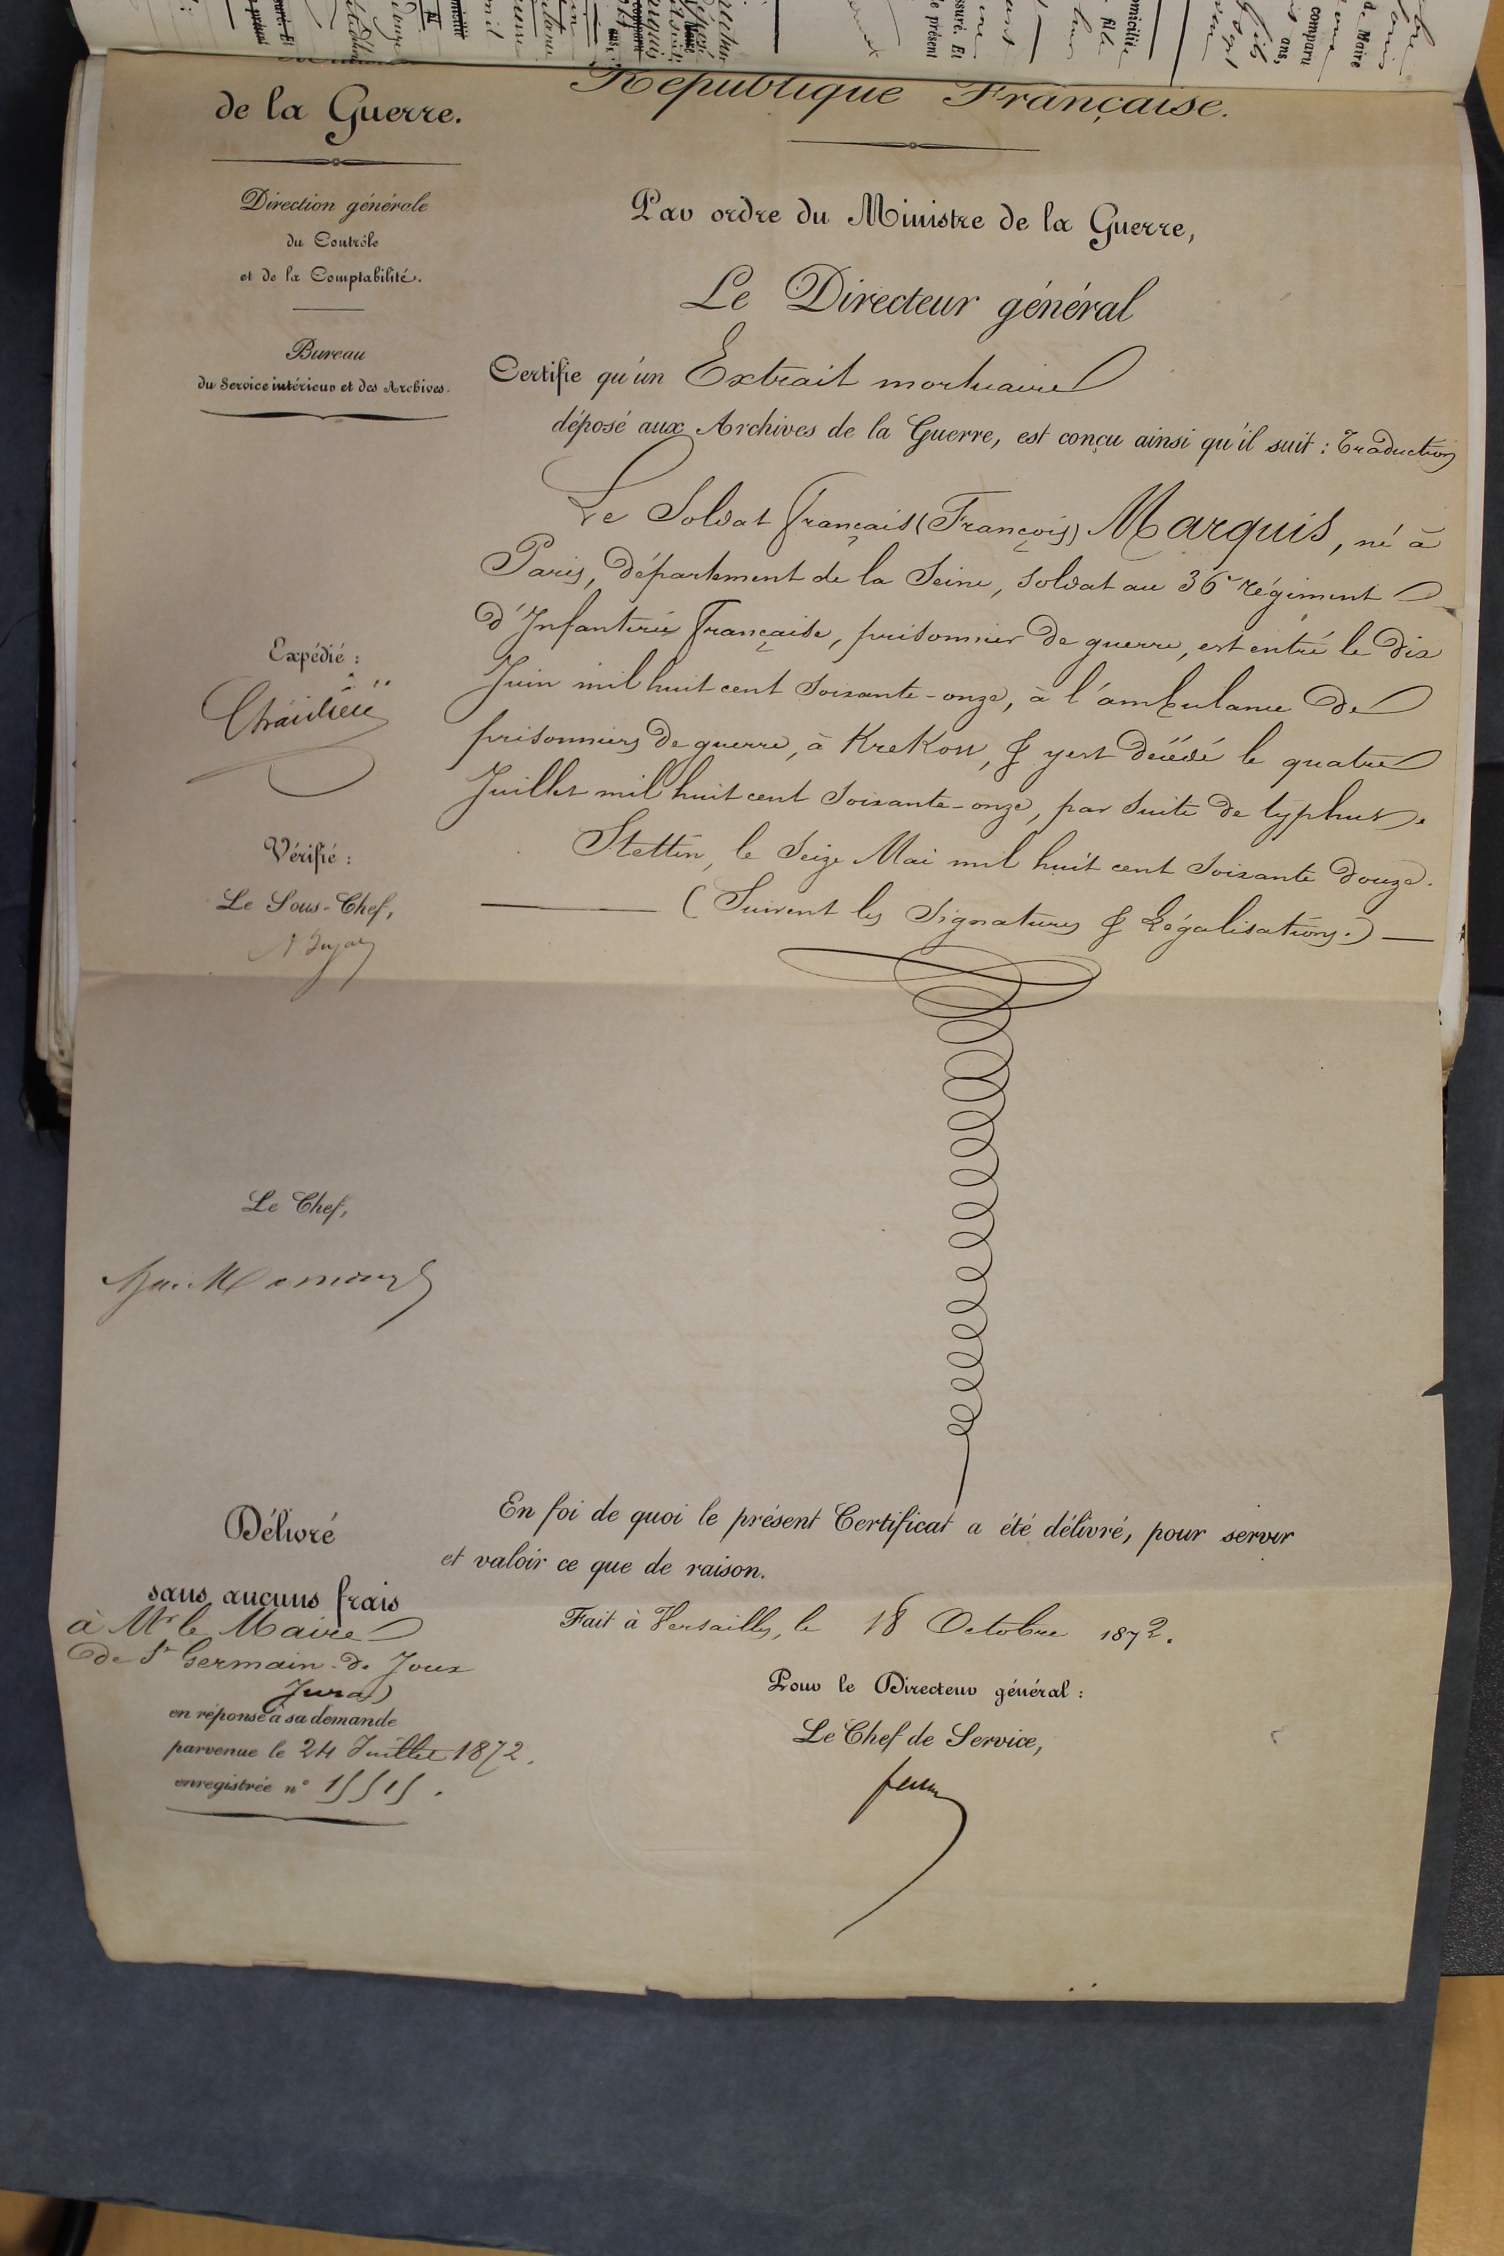 de la Guerre.
République Française.
Direction générale
du Contrôle
et de la Comptabilité.
Bureau
du Service intérieur et des Archives.
Par ordre du Ministre de la Guerre,
Le Directeur général
Certifie qu'un Extrait mortuaire
déposé aux Archives de la Guerre, est conçu ainsi qu'il suit : Traduction
Le Soldat Français (François) Marquis, né à
Paris, département de la Seine, soldat au 36e régiment
d'Infanterie Française, prisonnier de guerre, est entré le dix
Juin mil huit cent soixante-onze, à l'ambulance de
prisonniers de guerre, à Krekow, & y est décédé le quatre
Juillet mil huit cent soixante-onze, par suite de typhus.
Stettin, le seize Mai mil huit cent soixante douze.
(Suivent les Signatures & Légalisations.)
Expédié :
Vérifié :
Le Sous-Chef,
Le Chef,
Délivré
sans aucuns frais
à Mr le Maire
de St Germain de Joux
Jura)
en réponse à sa demande
parvenue le 24 Juillet 1872.
enregistrée n°
En foi de quoi le présent Certificat a été délivré, pour servir
et valoir ce que de raison.
Fait à Versailles, le 18 Octobre 1872.
Pour le Directeur général :
Le Chef de Service,